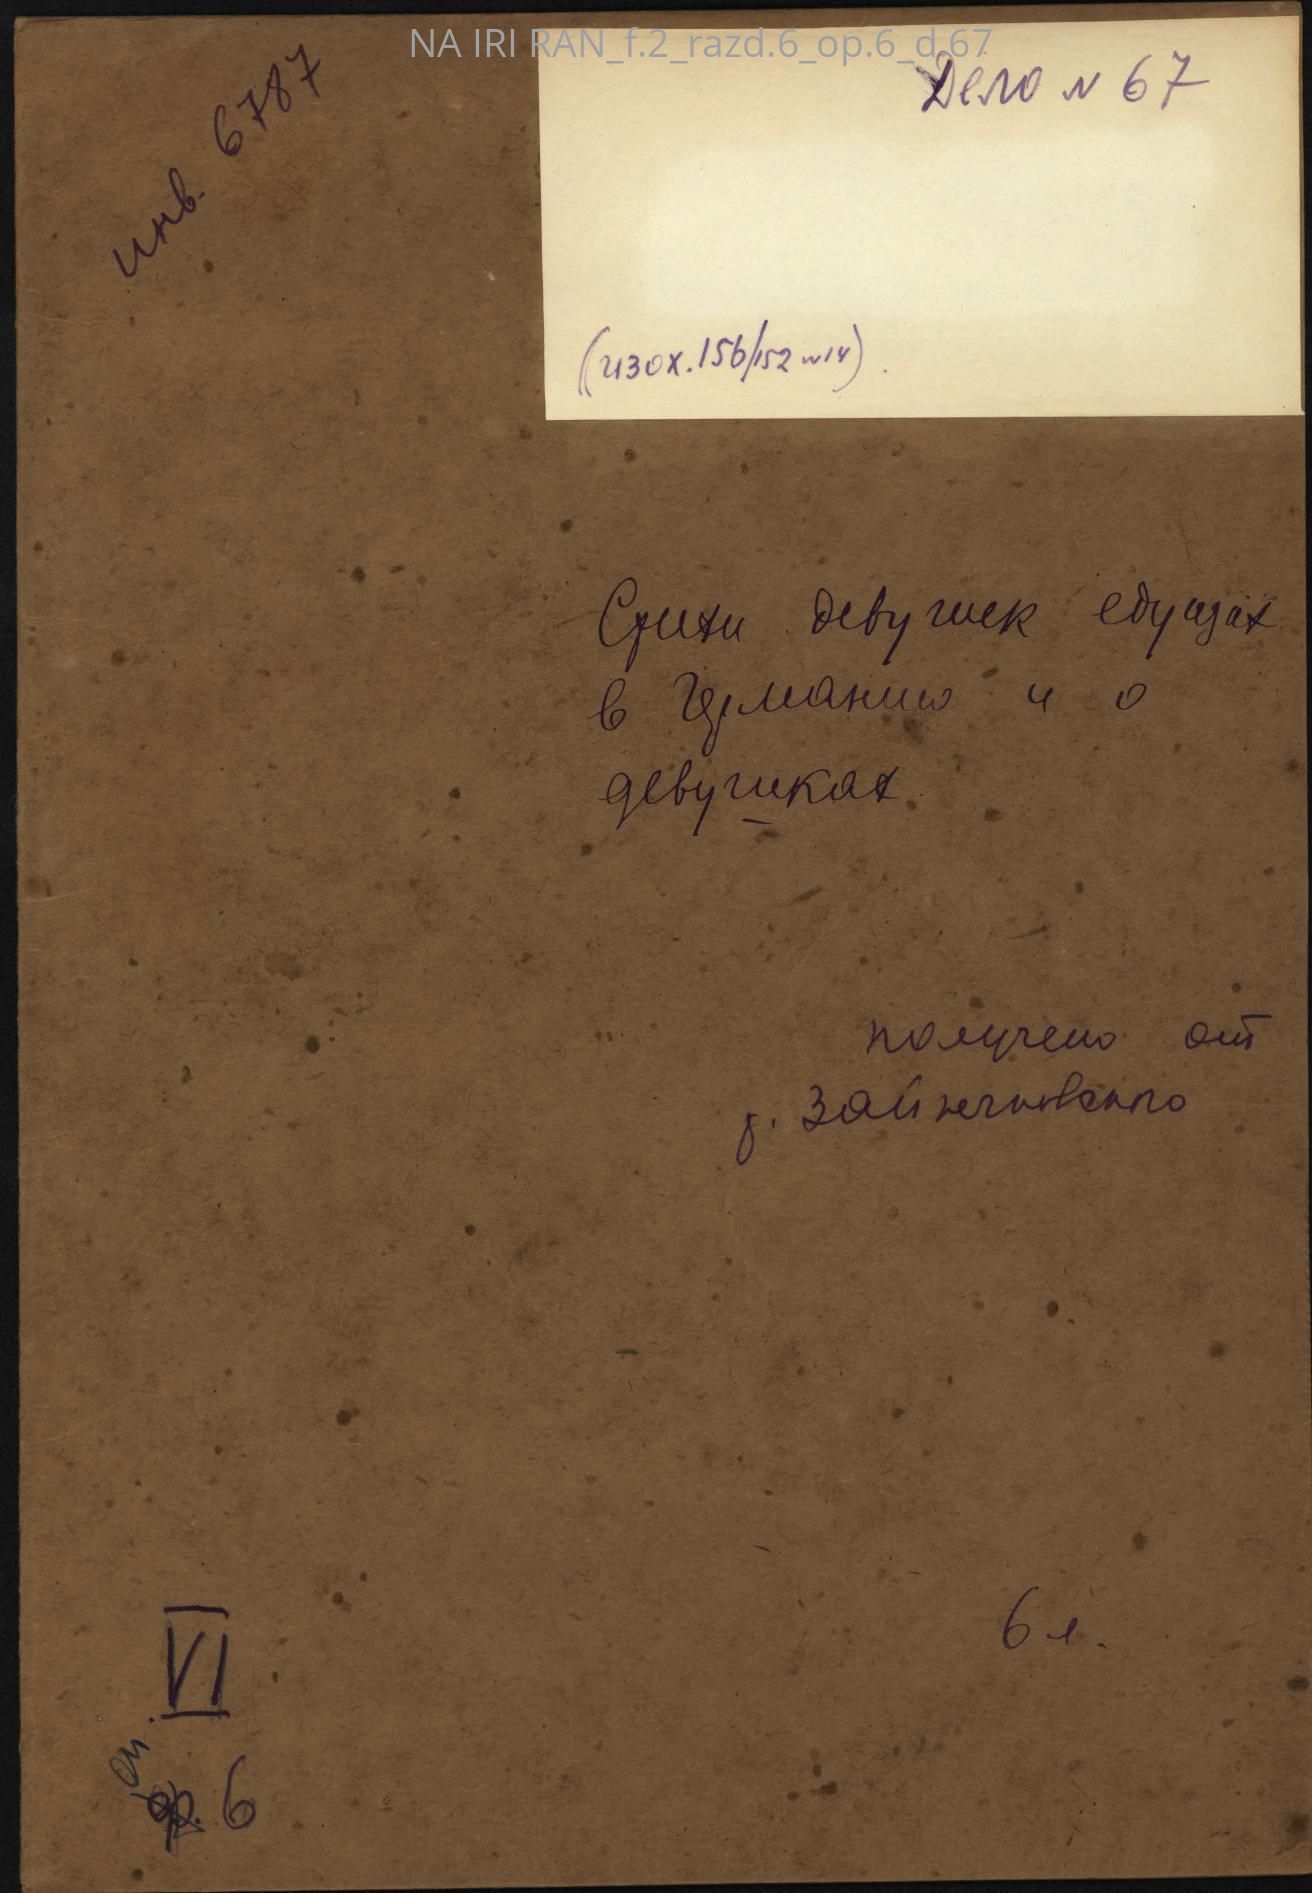 NA IRI RAN_f.2_razd.6_op.6_d.67
инв. 6787
Дело № 67
(изох. 156/152 № 14).
Стихи девушек едущих
в Германию и о
девушках
получено от
6 л.
VI
оп.
6